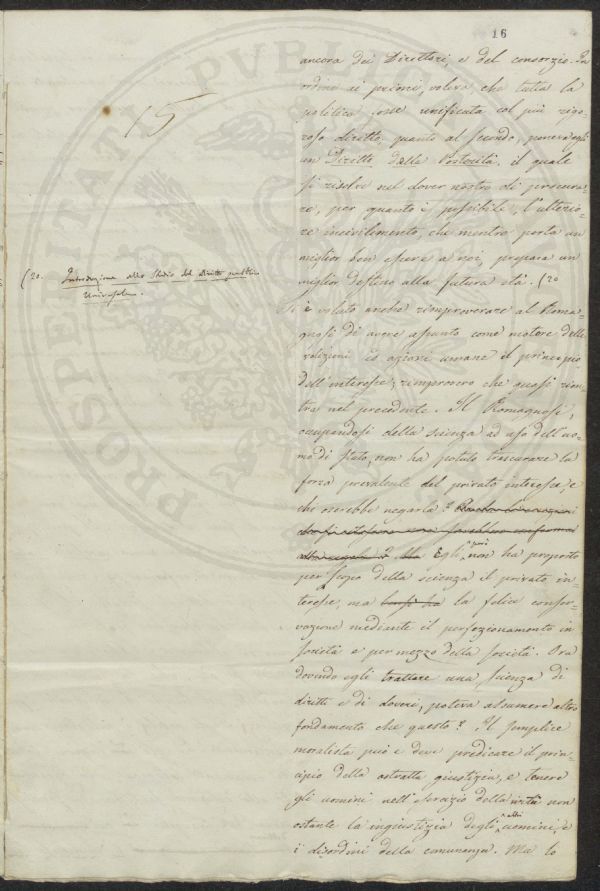 16
15
ancora dei Direttori, e del consorzio. In
ordine ai primi, voleva che tutta la
politica fosse unificata col più rigo-
roso diritto, quanto al secondo, poneva egli
un Diritto della Posterità, il quale
si risolve nel dover nostro di procura-
re, per quanto è possibile, l'ulterio-
re incivilimento, che mentre porta un
miglior ben essere a noi, prepara un
miglior destino alla futura età. (20
(20. Introduzione allo Studio del Diritto pubblico
Universale.
Si è voluto anche rimproverare al Roma-
gnosi di avere assunto come motore delle
volizioni ed azioni umane il principio
dell'interesse, rimprovero che quasi rien-
tra nel precedente. Il Romagnosi,
occupandosi della scienza ad uso dell'uo-
mo di Stato, non ha potuto trascurare la
forza prevalente del privato interesse, e
chi oserebbe negarla?
Egli però non ha proposto
per scopo della scienza il privato in-
teresse, ma bensì ha la felice conser-
vazione mediante il perfezionamento in
società e per mezzo della società. Ora
dovendo egli trattare una scienza di
diritti e di doveri, poteva assumere altro
fondamento che questo? Il semplice
moralista può e deve predicare il prin-
cipio della astratta giustizia, e tenere
gli uomini nell'esercizio della virtù non
ostante la ingiustizia degli altri uomini, e
i disordini della comunanza. Ma lo